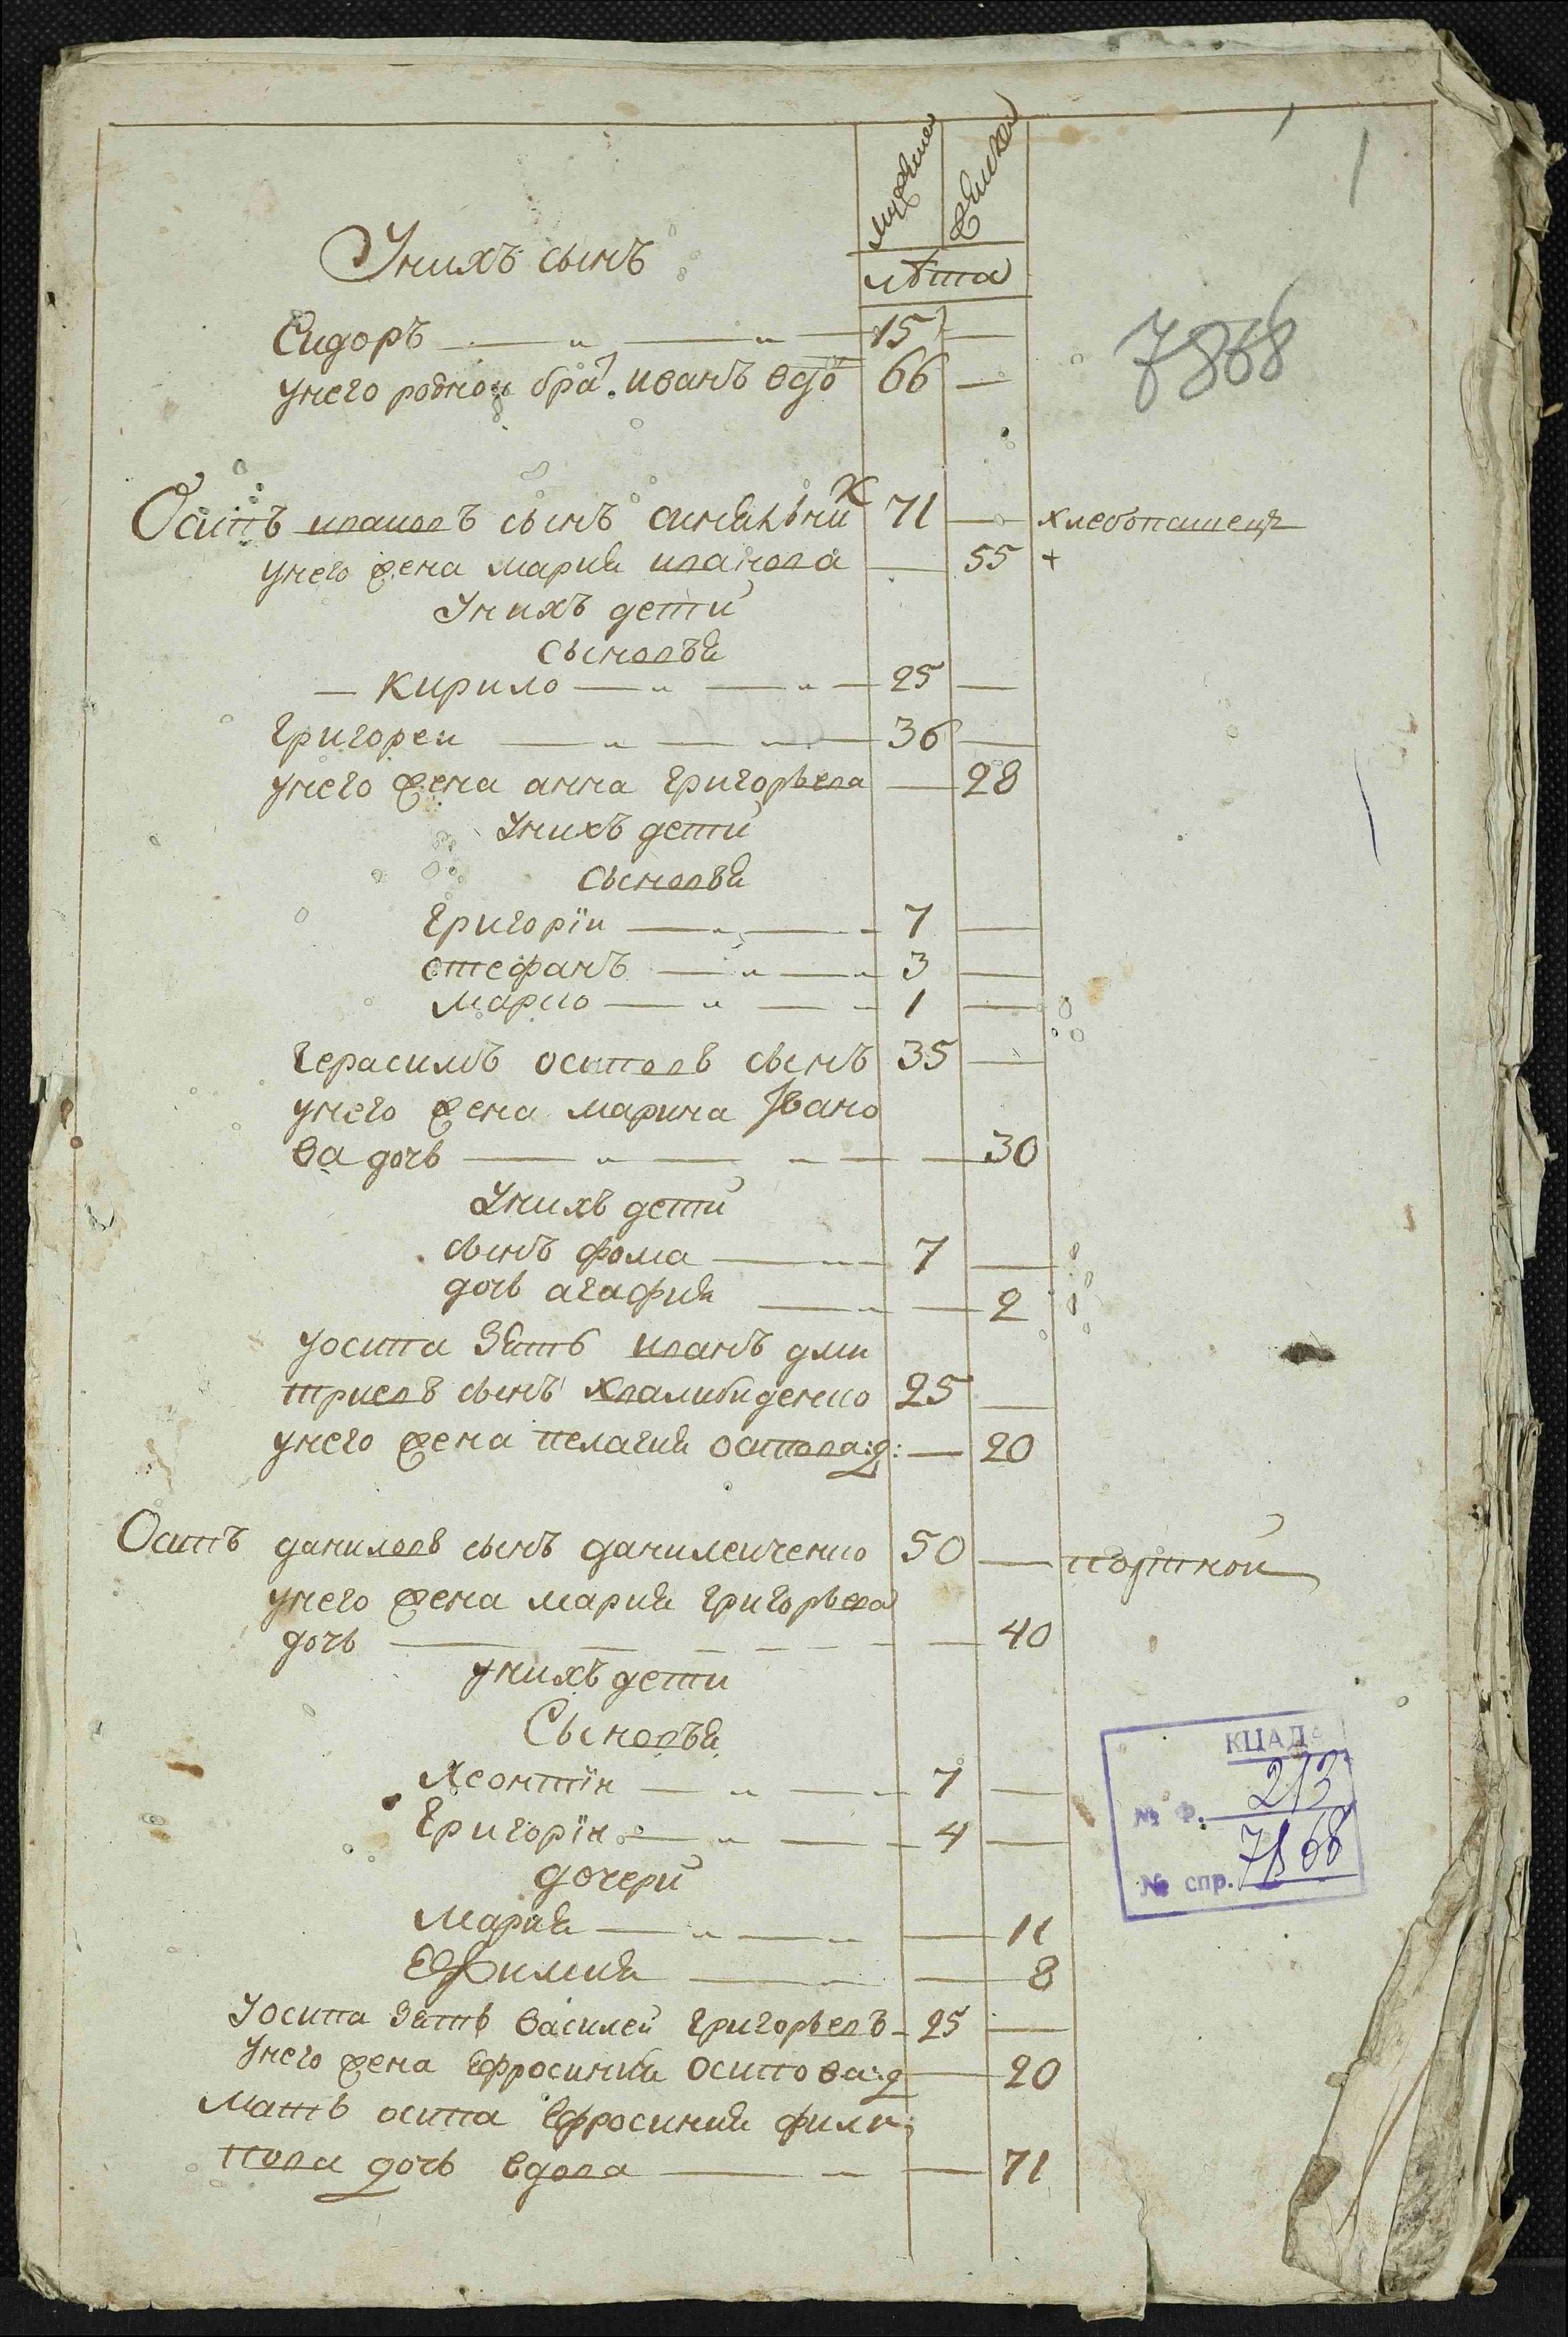 мужеска женска
лѣта
Унихъ сынъ
Сидоръ 15
унего родной бра. иванъ вдо 66
7868
1
Осипъ ивановъ сынъ синялни к 71 хлебопашецъ
унего жена мария иванова 55 +
Унихъ дети
сыновья
Кирило 25
Григореи 36
унего жена анна григорьева 28
Унихъ дети
сыновья
Григоріи 7
стефанъ 3
марко 1
Герасимъ осиповъ сынъ 35
унего жена марина Івано
ва дочь 30
Унихъ дети
сынъ фома 7
дочь агафия 2
уосипа зять иванъ дми
триевъ сынъ 25
унего жена пелагия осипова:д: 20
Осипъ даниловъ сынъ данилейченко 50 портной
унего жена мария григорьева
дочь 40
унихъ дети
Сыновья
Леонтіи 7
Григоріи 4
дочери
Мария 11
Ефимия 8
Уосипа зять василей григорьевъ 25
Унего жена Ефросиния осипова:д 20
Мать осипа Ефросиния фили
пова дочь вдова 71
КЦАДА
№ Ф. 213
№ спр. 7868